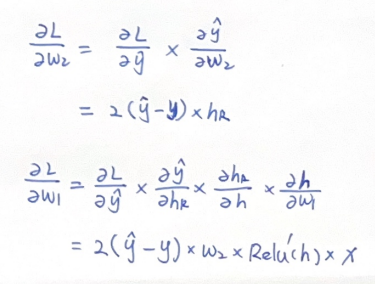 ∂L/∂w₂ = ∂L/∂ŷ × ∂ŷ/∂w₂
= 2(ŷ-y) × hR
∂L/∂w₁ = ∂L/∂ŷ × ∂ŷ/∂hR × ∂hR/∂h × ∂h/∂w₁
= 2(ŷ-y) × w₂ × Relu'(h) × x